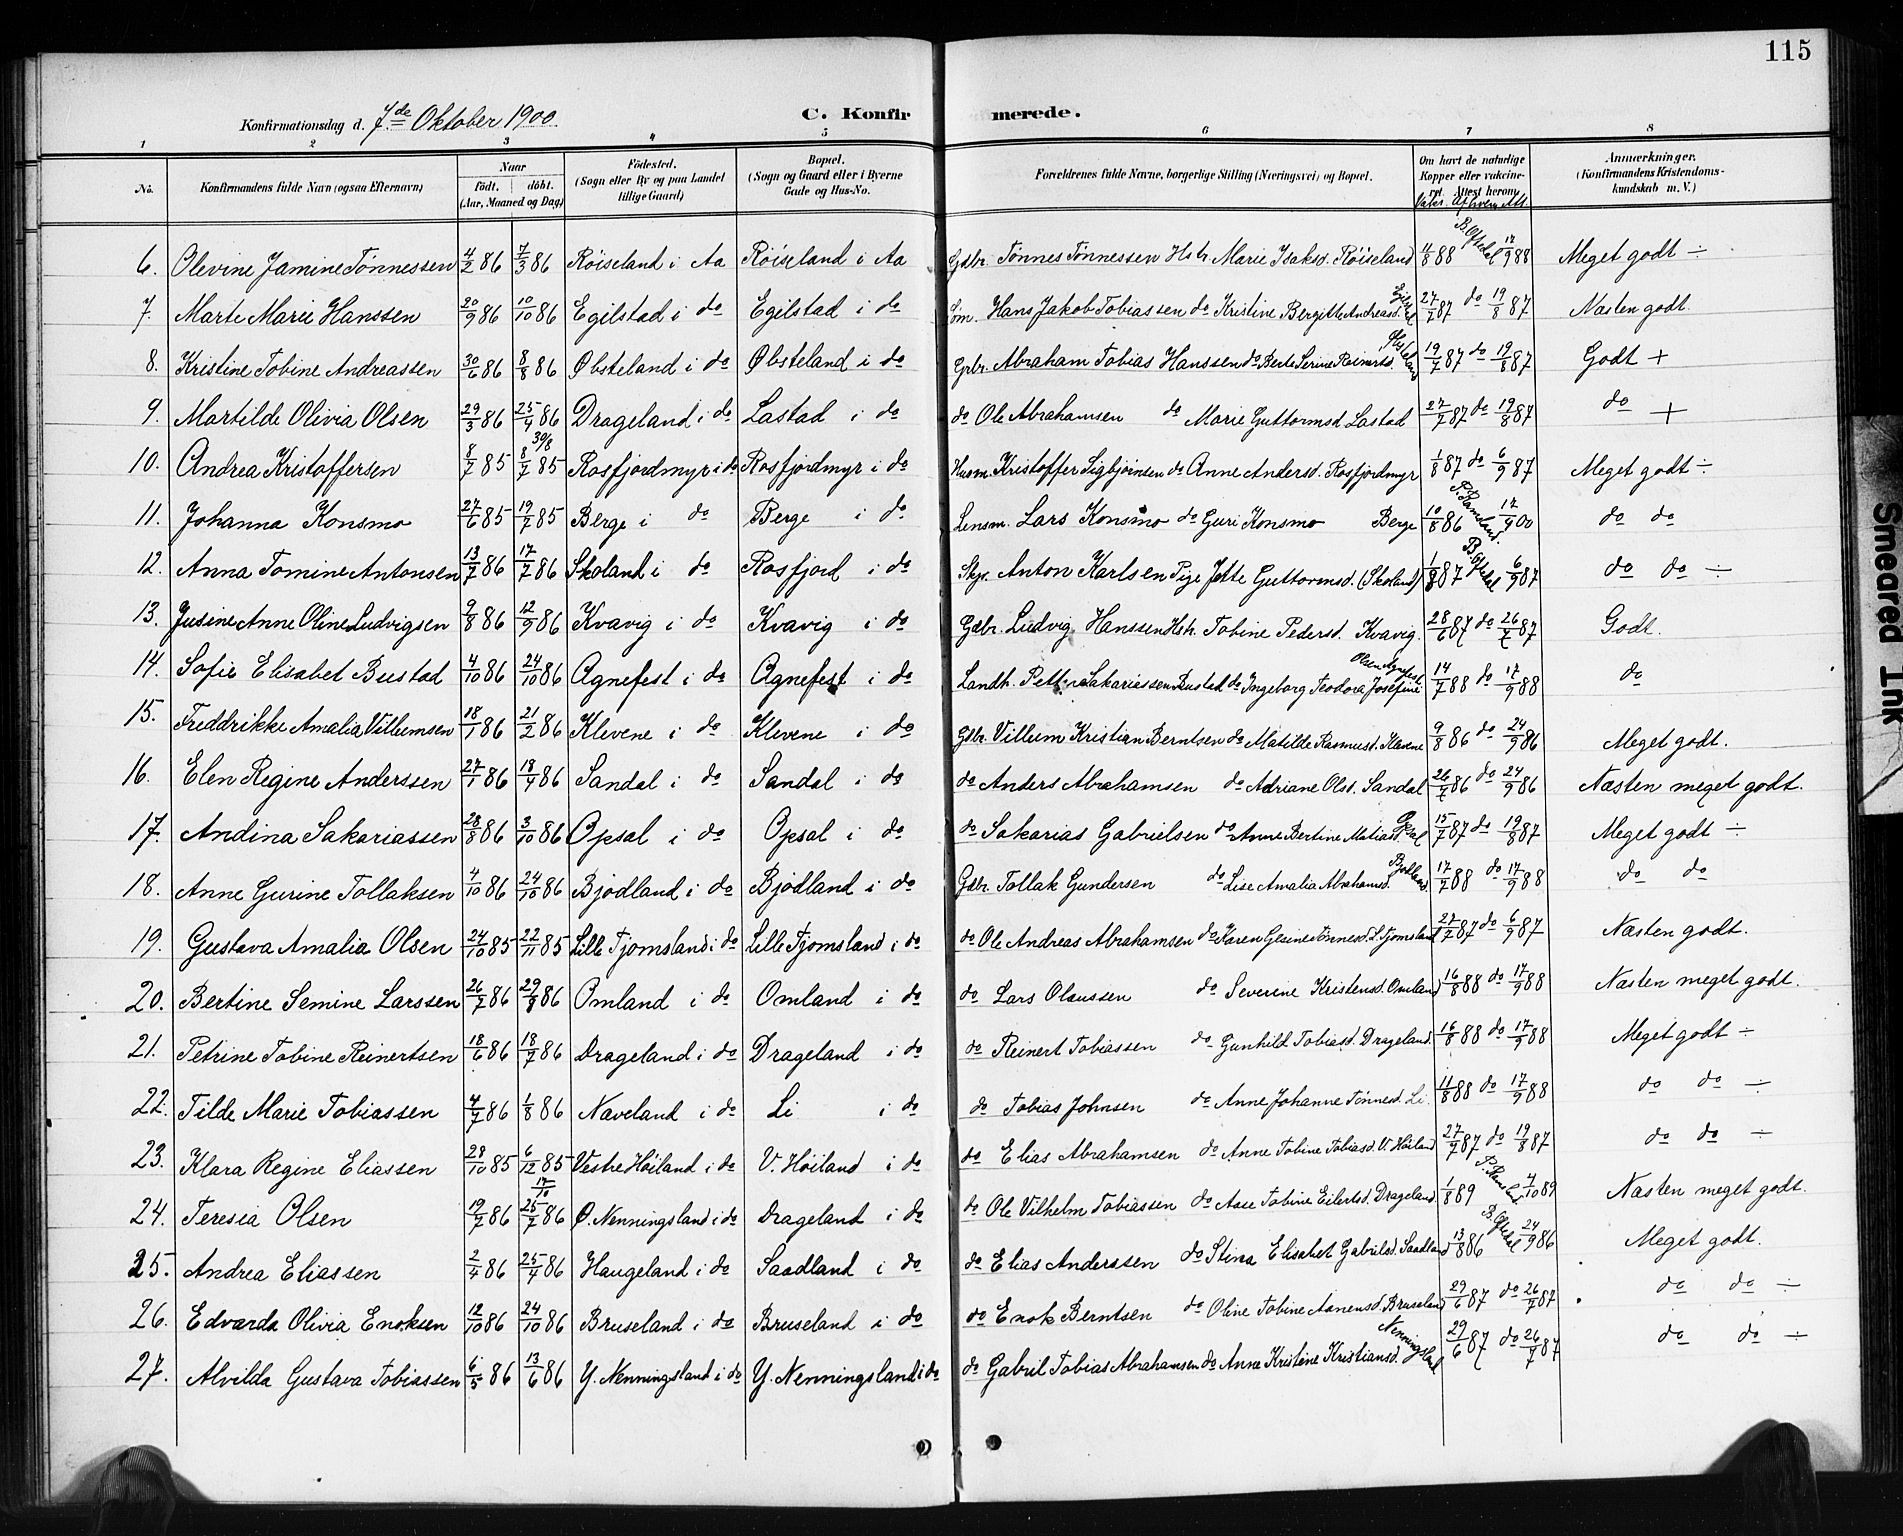 115
Konfirmationsdag d. 7de Oktober 1900. C. Konfir merede.
1 2 3 4 5 6 7 8
No. Konfirmandens fulde Navn (ogsaa Efternavn) Naar født. døbt. (Aar, Maaned og Dag) Fødested. (Sogn eller By og paa Landet tillige Gaard) Bopæl. (Sogn og Gaard eller i Byerne Gade og Hus-No. Forældrenes fulde Navne, borgerlige Stilling (Næringsvei) og Bopæl. Om havt de naturlige Kopper eller vakcineret. Attest herom. Anmærkninger. (Konfirmandens Kristendomskundskab m. V.)
6. Olevine Jamine Tønnessen 4/2 86 7/3 86 Røiseland i Aa Røiseland i Aa Gdbr. Tønnes Tønnessen Hstr. Marie Isaksd. Røiseland 11/8 88 B. Oftedal 17/9 88 Meget godt ÷
7. Marte Marie Hanssen 20/9 86 10/10 86 Egilstad i do Egilstad i do Søm. Hans Jakob Tobiassen do Kristine Bergitte Andreasd. 27/7 87 do 19/8 87 Næsten godt.
8. Kristine Tobine Andreassen 30/6 86 8/8 86 Øbsteland i do Øbsteland i do Gdbr. Abraham Tobias Hanssen do Berte Serine Reinertsd. 19/7 87 do 19/8 87 Godt +
9. Martilde Olivia Olsen 29/3 86 25/4 86 Drageland i do Lastad i do do Ole Abrahamsen do Marie Guttormsd Lastad 27/7 87 do 19/8 87 do +
10. Andrea Kristoffersen 8/7 85 30/8 8/7 85 Rosfjordmyr i do Rosfjordmyr i do Husm. Kristoffer Sigbjørnsen do Anne Andersd. Rosfjordmyr 1/8 87 do 6/9 87 Meget godt ÷
11. Johanna Konsmo 27/6 85 19/7 85 Berge i do Berge i do Lensm. Lars Konsmo do Guri Konsmo Berge 10/8 86 17/9 00 do do
12. Anna Tomine Antonsen 13/7 86 17/7 86 Skoland i do Rosfjord i do Anton Karlsen Pige Jette Guttormsd. (Skoland) 1/8 87 B. Oftedal 6/9 87 do do ÷
13. Jusine Anne Oline Ludvigsen 9/8 86 12/9 86 Kvavig i do Kvavig i do Gdbr. Ludvig Hanssen Hstr. Tobine Pedersd. Kvavig. 28/6 87 do 26/7 87 Godt.
14. Sofie Elisabet Bustad 4/10 86 24/10 86 Agnefest i do Agnefest i do Landh. Petter Sakariassen Bustad do Ingeborg Teodora Josefine Olsen Agnefest 14/7 88 do 17/9 88 do
15. Freddrikke Amalia Villumsen 18/1 86 21/2 86 Klevene i do Klevene i do Gdbr. Villum Kristian Berntsen do Matilde Rasmusd. Klevene 9/8 86 do 24/9 86 Meget godt.
16. Elen Regine Anderssen 27/1 86 18/4 86 Sandal i do Sandal i do do Anders Abrahamsen do Adriane Olsd. Sandal 26/7 86 do 24/9 86 Næsten meget godt.
17. Andina Sakariassen 28/8 86 3/10 86 Opsal i do Opsal i do do Sakarias Gabrielsen do Anne Bertine Matiasd. Opsal 15/7 87 do 19/8 87 Meget godt ÷
18. Anne Gurine Tollaksen 4/10 86 24/10 86 Bjødland i do Bjødland i do Gdbr. Tollak Gundersen do Lise Amalia Abrahamsd. Bjødland 17/7 88 do 17/9 88 do do
19. Gustava Amalia Olsen 24/10 85 22/11 85 Lille Tjomsland i do Lille Tjomsland i do do Ole Andreas Abrahamsen do Karen Gesine Tønnesd. L. Tjomsland 27/7 87 do 6/9 87 Næsten godt.
20. Bertine Semine Larssen 26/7 86 29/8 86 Omland i do Omland i do do Lars Olaussen do Severine Kristensd. Omland 16/8 88 do 17/9 88 Næsten meget godt.
21. Petrine Tobine Reinertsen 18/6 86 18/7 86 Drageland i do Drageland i do do Reinert Tobiassen do Gunhild Tobiasd. Drageland. 16/8 88 do 17/9 88 Meget godt ÷
22. Tilde Marie Tobiassen 4/7 86 1/8 86 Naveland i do Li i do do Tobias Johnsen do Anne Johanne Tønnesd. Li. 11/8 88 do 17/9 88 do do ÷
23. Klara Regine Eliassen 28/10 85 6/12 85 Vestre Høiland i do V. Høiland i do do Elias Abrahamsen do Anne Tobine Tobiasd. V. Høiland 27/7 87 do 19/8 87 do do ÷
24. Teresia Olsen 19/7 86 17/10 25/7 86 Ø. Nenningsland i do Drageland i do do Ole Vilhelm Tobiassen do Aase Tobine Eilertsd. Drageland. 1/8 89 7/10 89 Næsten meget godt.
25. Andrea Eliassen 2/4 86 25/4 86 Haugeland i do Saadland i do do Elias Anderssen do Stina Elisabet Gabrielsd. Saadland 13/8 86 B. Oftedal 24/9 86 Meget godt.
26. Edvarda Olivia Enoksen 12/10 86 24/10 86 Bruseland i do Bruseland i do do Enok Berntsen do Oline Tobine Aanensd. Bruseland 29/6 87 do 26/7 87 do do ÷
27. Alvilda Gustava Tobiassen 6/5 86 13/6 86 Y. Nenningsland i do Y. Nenningsland i do do Gabriel Tobias Abrahamsen do Anne Kristine Kristiansd. Nenningsland 29/6 87 do 26/7 87 do do ÷
Smeared Ink